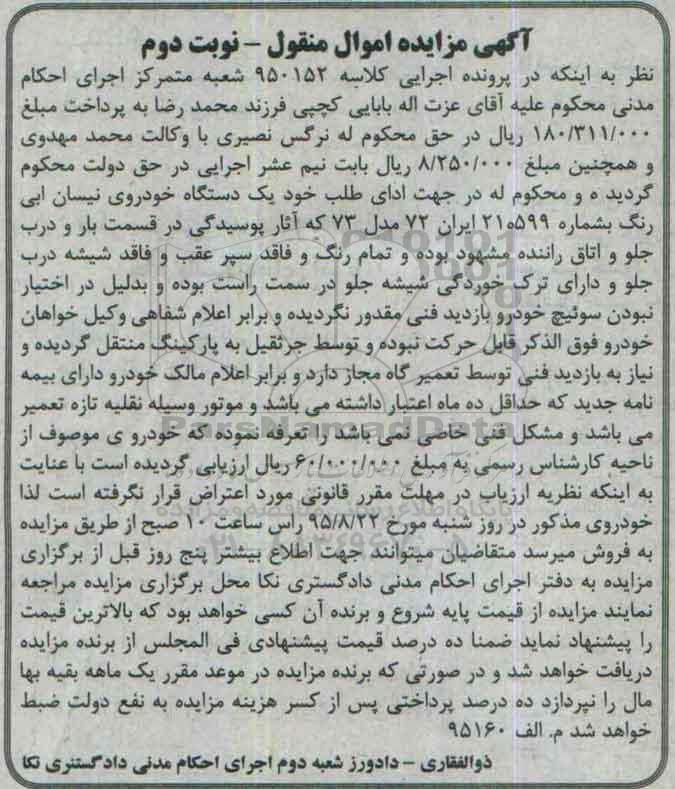 آگهی مزایده اموال منقول - نوبت دوم
نظر به اینکه در پرونده اجرایی کلاسه ۹۵۰۱۵۲ شعبه متمرکز اجرای احکام
مدنی محکوم علیه آقای عزت اله بابایی کچپی فرزند محمد رضا به پرداخت مبلغ
۱۸۰/۳۱۱/۰۰۰ ریال در حق محکوم له نرگس نصیری با وکالت محمد مهدوی
و همچنین مبلغ ۸/۲۵۰/۰۰۰ ریال بابت نیم عشر اجرایی در حق دولت محکوم
گردید ه و محکوم له در جهت ادای طلب خود یک دستگاه خودروی نیسان ابی
رنگ بشماره ایران ۷۲ مدل ۷۳ که آثار پوسیدگی در قسمت بار و درب
جلو و اتاق راننده مشهود بوده و تمام رنگ و فاقد سپر عقب و فاقد شیشه درب
جلو و دارای ترک خوردگی شیشه جلو در سمت راست بوده و بدلیل در اختیار
نبودن سوئیچ خودرو بازدید فنی مقدور نگردیده و برابر اعلام شفاهی وکیل خواهان
خودرو فوق الذکر قابل حرکت نبوده و توسط جرثقیل به پارکینگ منتقل گردیده و
نیاز به بازدید فنی توسط تعمیر گاه مجاز دارد و برابر اعلام مالک خودرو دارای بیمه
نامه جدید که حداقل ده ماه اعتبار داشته می باشد و موتور وسیله نقلیه تازه تعمیر
می باشد و مشکل فنی خاصی نمی باشد را تعرفه نموده که خودرو ی موصوف از
ناحیه کارشناس رسمی به مبلغ ۶۰/۰۰۰/۰۰۰ ریال ارزیابی گردیده است با عنایت
به اینکه نظریه ارزیاب در مهلت مقرر قانونی مورد اعتراض قرار نگرفته است لذا
خودروی مذکور در روز شنبه مورخ ۹۵/۸/۲۲ راس ساعت ۱۰ صبح از طریق مزایده
به فروش میرسد متقاضیان میتوانند جهت اطلاع بیشتر پنج روز قبل از برگزاری
مزایده به دفتر اجرای احکام مدنی دادگستری نکا محل برگزاری مزایده مراجعه
نمایند مزایده از قیمت پایه شروع و برنده آن کسی خواهد بود که بالاترین قیمت
را پیشنهاد نماید ضمنا ده درصد قیمت پیشنهادی فی المجلس از برنده مزایده
دریافت خواهد شد و در صورتی که برنده مزایده در موعد مقرر یک ماهه بقیه بها
مال را نپردازد ده درصد پرداختی پس از کسر هزینه مزایده به نفع دولت ضبط
خواهد شد م. الف ۹۵۱۶۰
ذوالفقاری - دادورز شعبه دوم اجرای احکام مدنی دادگستری نکا
ParsNamadData